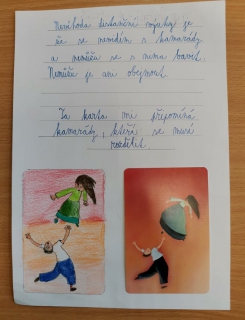 Nevýhoda distanční výuky je
že se nevidím s kamarády
a nemůžu se s nima bavit.
Nemůžu je ani obejmout.
Ta karta mi připomíná
kamarády, kteří se musí
rozdělit.